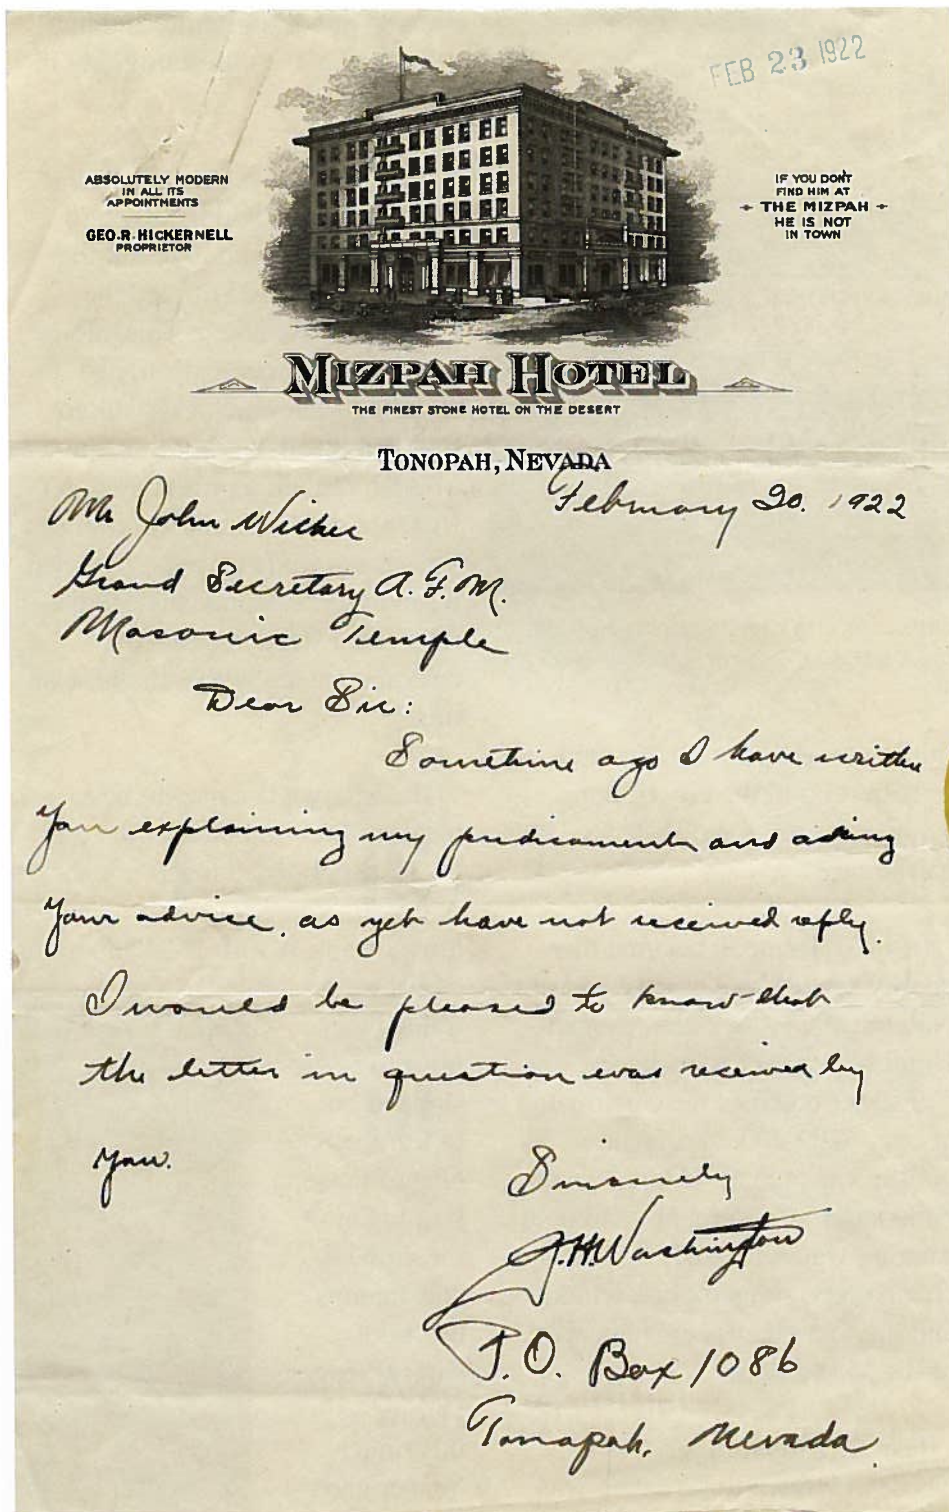 FEB 23 1922
ABSOLUTELY MODERN
IN ALL ITS
APPOINTMENTS
GEO. R. HICKERNELL
PROPRIETOR
IF YOU DON'T
FIND HIM AT
THE MIZPAH
HE IS NOT
IN TOWN
MIZPAH HOTEL
THE FINEST STONE HOTEL ON THE DESERT
TONOPAH, NEVADA
February 20. 1922
Mr John Wicker
Grand Secretary A. F. M.
Masonic Temple
Dear Sir:
Sometime ago I have written
you explaining my predicament and asking
your advice, as yet have not received reply.
I would be pleased to know that
the letter in question was received by
you.
Sincerely
J. H. Washington
P.O. Box 1086
Tonopah, Nevada.